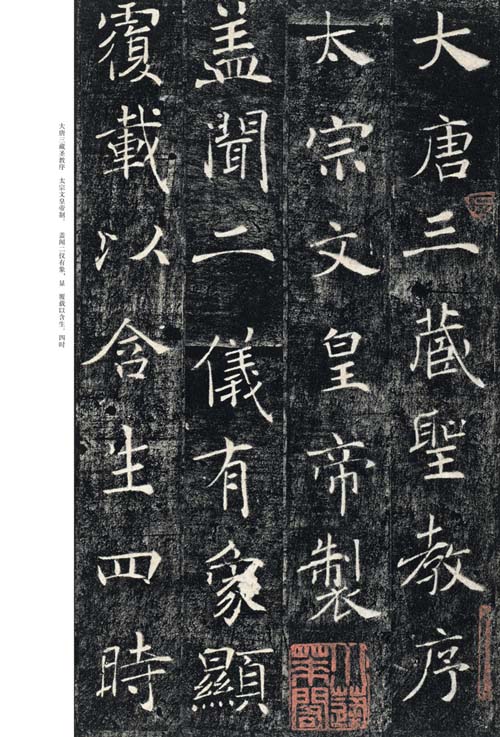 大唐三藏聖教序
太宗文皇帝製
盖聞二儀有象顯
覆載以含生四時
大唐三藏圣教序 太宗文皇帝制。 盖闻二仪有象，显 覆载以含生。四时